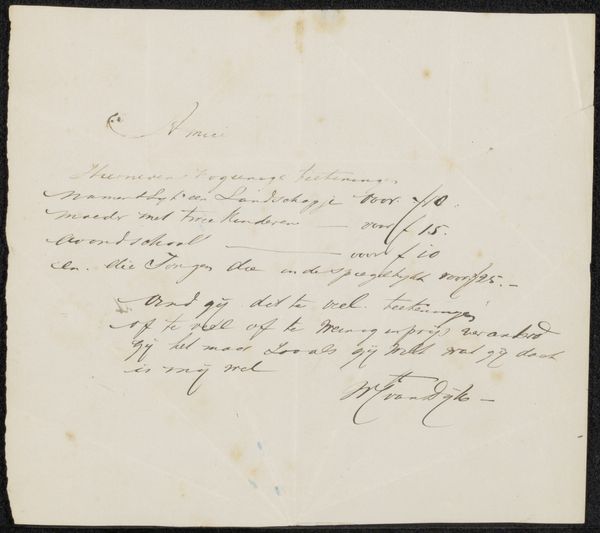 Amice
Hiernevens toegevoegd teekeningen
namentlyk een Landschapje voor f10.
moeder met twee kinderen — voor f 15.
avondschool — voor f 10
en die Jongen die in de spiegel kykt voor f25.—
vind gij dit te veel teekeningen
of te veel of te weinig in prijs verander
gij het maar zooals gij wilt wat gij doet
is mij wel
van Dijk —